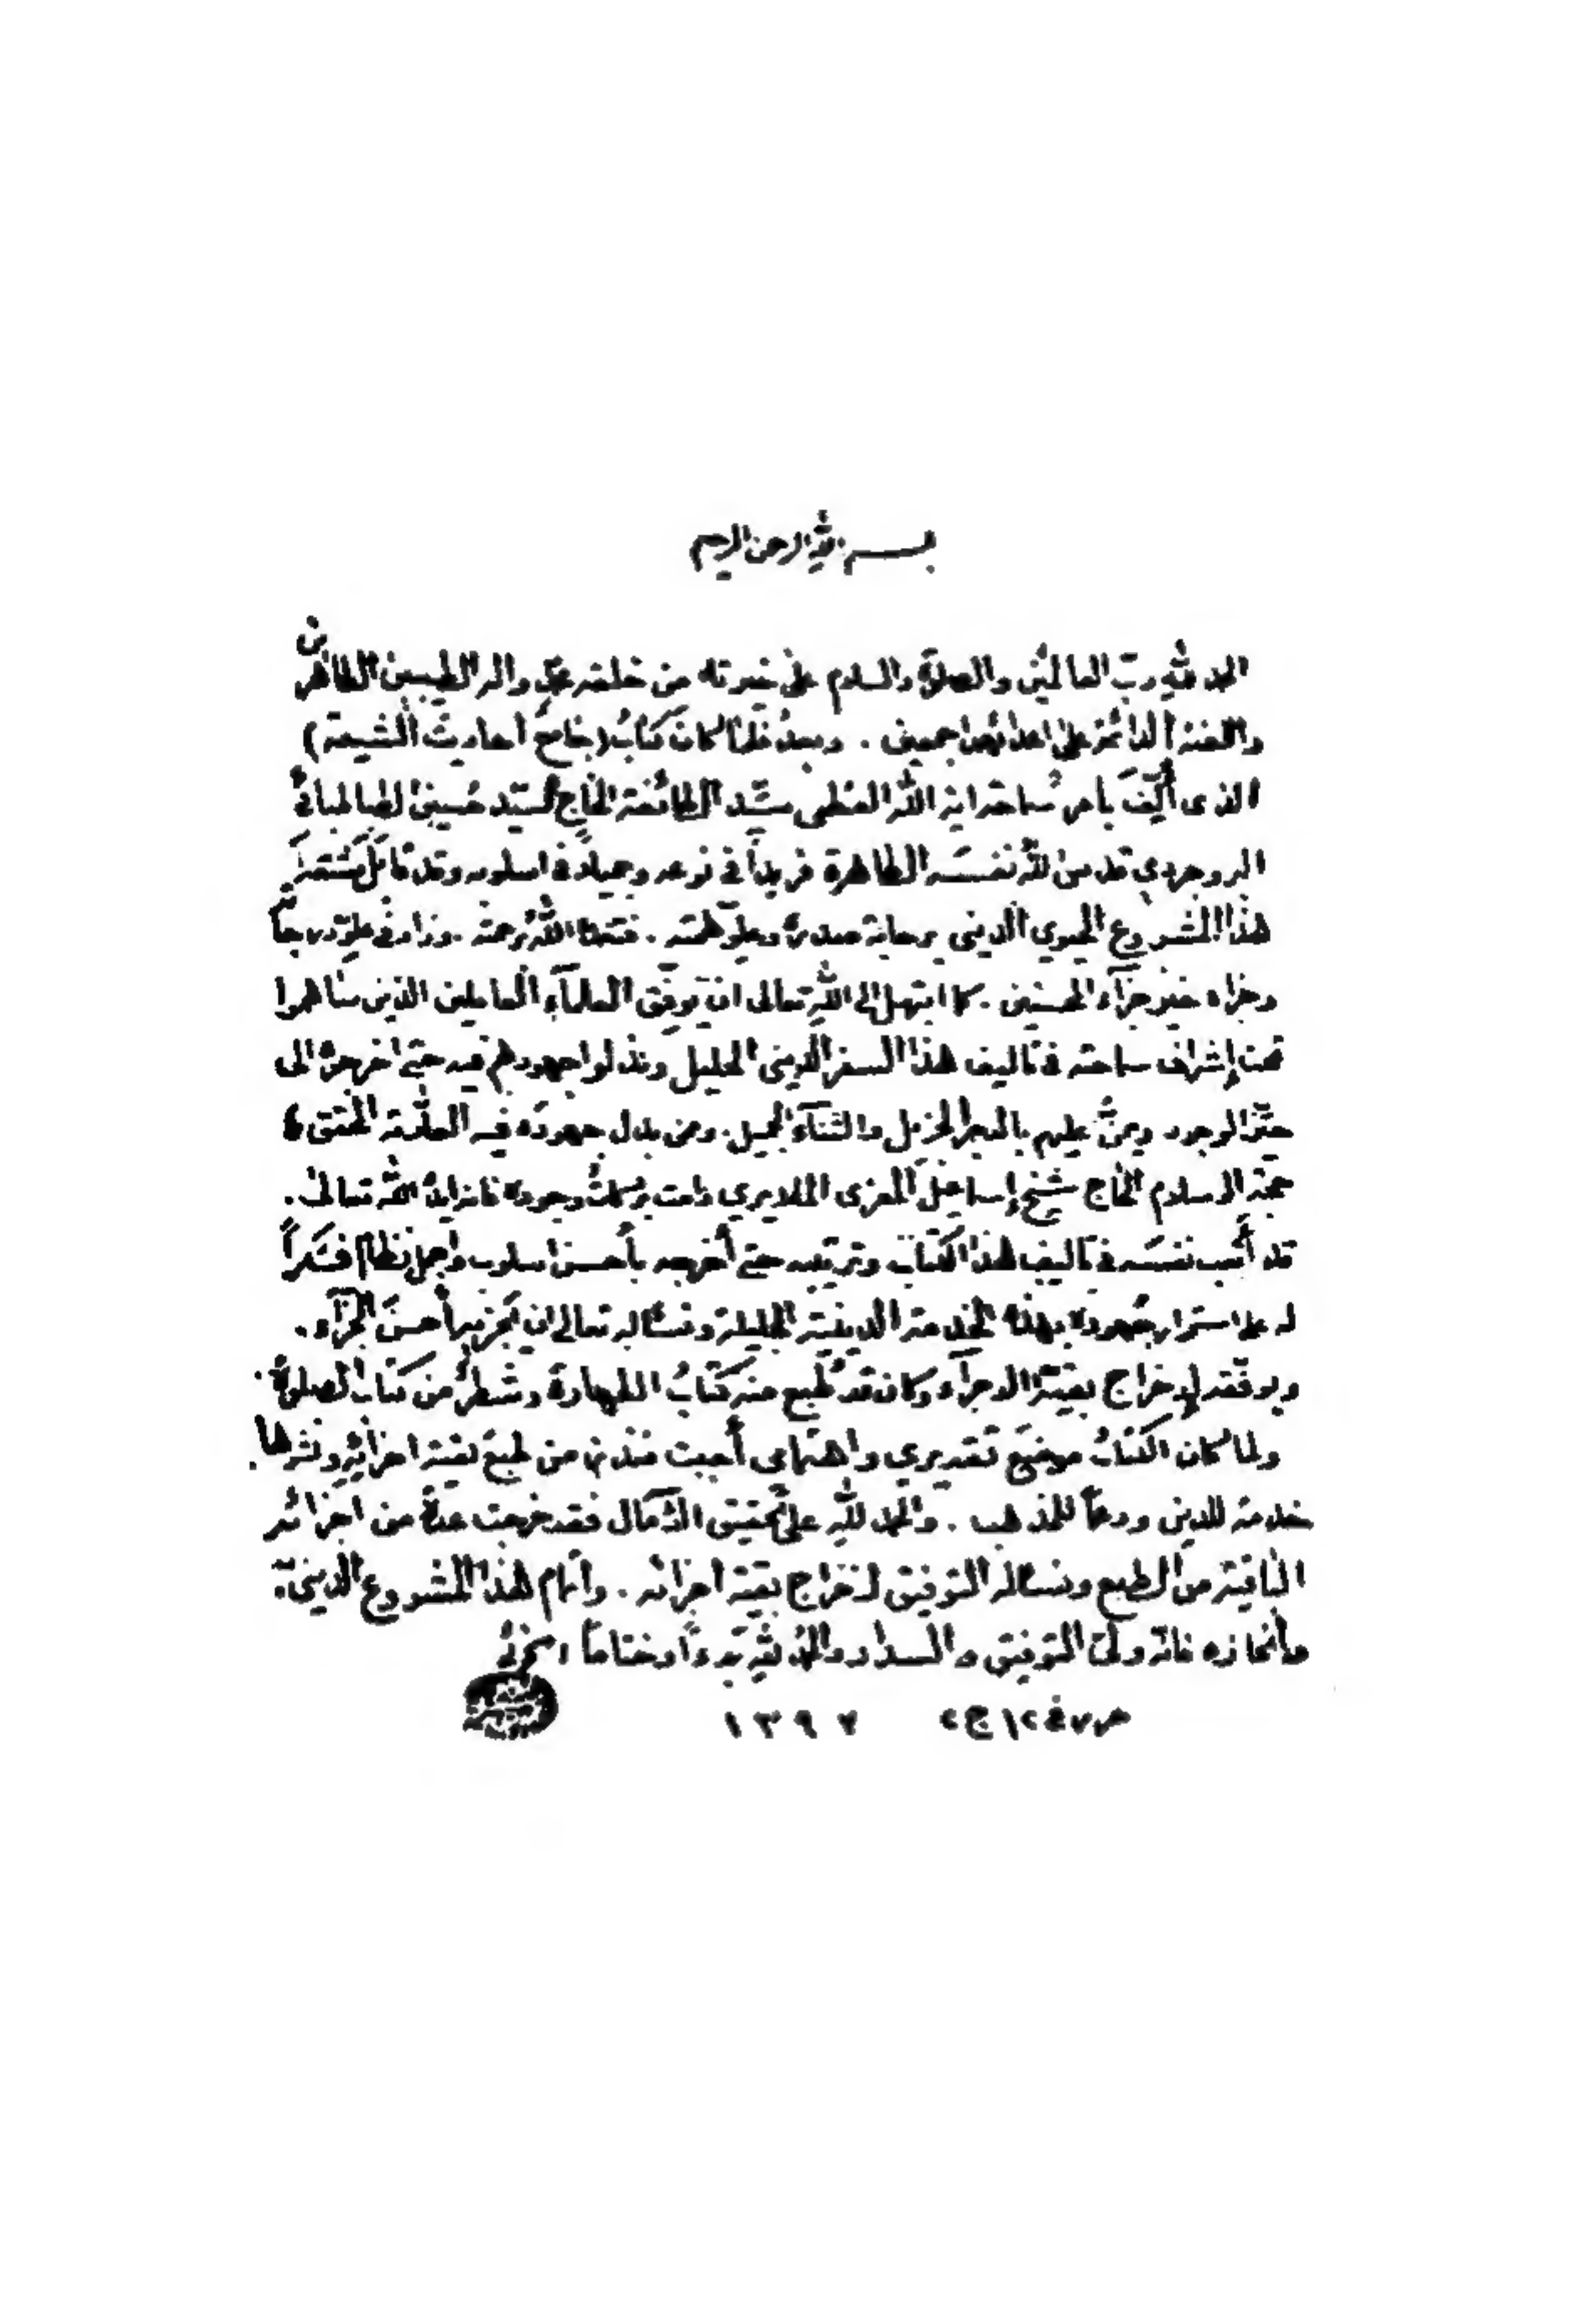 بسم الله الرحمن الرحيم
الحمد لله ربّ العالمين والصلوة والسلام على خيرته من خلقه محمّد واله الطيبين الطاهرين
واللعنة الدائمة على اعدائهم اجمعين . وبعدُ فلمّا كان كتابُ (جامعُ أحاديث الشيعة)
الذى أُلِّفَ بأمر سُماحة اية الله العظمى سيّد الطائفة الحاج السيّد حُسين الطباطبائى
البروجردي قدس اللهُ نفسَه الطاهرة فريداً في نوعه وجميلاً في اسلوبه وقد
هذا المشروع الحيوي الديني برحابة صدره وعلوّ همّته . فتغمّده اللهُ برحمته . وزاد في علوّ درجاته
وجزاه خير جزآء المحسنين . كما ابتهل إلى اللهِ تعالى ان يُوفِّق العلمآء العاملين الذين ساهموا
تحت إشراف سماحته في تاليف هذا السفر الديني الجليل وبذلوا جهودهم فيه حتى اخرجوه الى
حيّز الوجود ويمنَّ عليهم بالاجر الجزيل والثنآء الجميل . ومن بذل جهوده فيه العلّامة المحقق
حجة الاسلام الحاج شيخ إسماعيل المعزى الملايري دامت بركاتُ وجوده فانه ايدّه الله تعالى .
قد أتعب نفسَه في تاليف هذا الكتاب وترتيبه حتى أخرجه بأحسن اسلوب واجمل نظام فشكراً
له على استمرار جُهوده بهذه الخدمة الدينية الجليلة ونسأله تعالى ان يجزيه أحسنَ الجزآء .
ويوفّقه لإخراج بقيّة الاجزآء وكان قد طُبع منه كتابُ الطهارة وشطرٌ من كتاب الصلوة .
ولما كان الكتابُ موضعَ تقديري واهتمامى أحببت طبع بقية اجزائِه ونشرها .
خدمة للدين ودعماً للمذهب . والحمد للهِ على تحقيق الآمال فقد خرجت عدة من اجزائه
الباقية من الطبع ونسأله التوفيق لاخراج بقية اجزائه . وإتمام هذا المشروع الديني
وانجازه فانه وليّ التوفيق والسداد والحمد للهِ بدءاً وختاماً
١٢ ج٢ ١٣٩٧